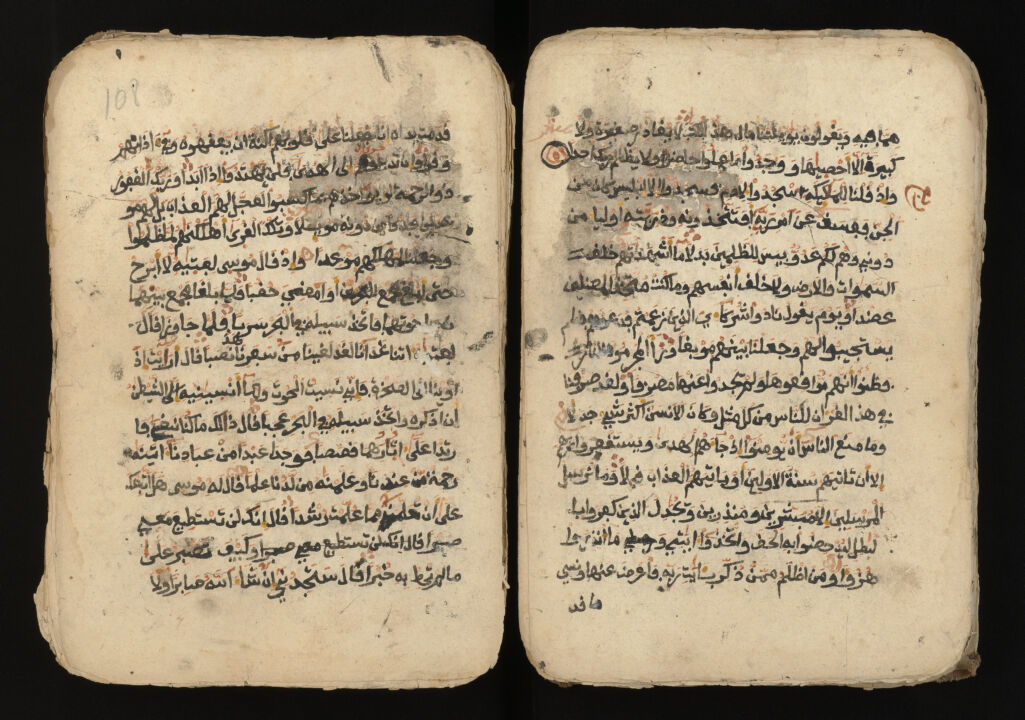 مما فيه ويقولون يويلتنا مال هذا الكتب لا يغادر صغيرة ولا
كبيرة الا احصيها ووجدوا ما عملوا حاضرا ولا يظلم ربك احدا
واذ قلنا للمليكة اسجدوا لادم فسجدوا الا ابليس كان من
الجن ففسق عن امر ربه افتتخذونه وذريته اوليا من
دوني وهم لكم عدو بيس للظلمين بدلا ما اشهدتهم خلق
السموات والارض ولا خلق انفسهم وما كنت متخذ المضلين
عضدا ويوم يقول نادوا شركاءي الذين زعمتم فدعوهم فلم
يستجيبوا لهم وجعلنا بينهم موبقا ورا المجرمون النار
وظنوا انهم مواقعوها ولم يجدوا عنها مصرفا ولقد صرفنا
في هذا القران للناس من كل مثل وكان الانسن اكثر شي جدلا
وما منع الناس ان يومنوا اذ جاهم الهدى ويستغفروا ربهم
الا ان تاتيهم سنة الاولين او ياتيهم العذاب قبلا وما نرسل
المرسلين الا مبشرين ومنذرين ويجدل الذين كفروا با
لبطل ليدحضوا به الحق واتخذوا ايتي وما انذروا
هزوا ومن اظلم ممن ذكر بايت ربه فاعرض عنها ونسي
ما قد
108
قدمت يداه انا جعلنا على قلوبهم اكنة ان يفقهوه وفي اذانهم
وقرا وان تدعهم الى الهدى فلن يهتدوا اذا ابدا وربك الغفور
ذو الرحمة لو يواخذهم بما كسبوا لعجل لهم العذاب بل لهم مو
عد لن يجدوا من دونه مويلا وتلك القرى اهلكنهم لما ظلموا
وجعلنا لمهلكهم موعدا واذ قال موسى لفتيه لا ابرح
حتى ابلغ مجمع البحرين او امضي حقبا فلما بلغا مجمع بينهما
نسيا حوتهما فاتخذ سبيله في البحر سربا فلما جاوزا قال
لفتيه اتنا غدانا لقد لقينا من سفرنا هذا نصبا قال ارايت اذ
اوينا الى الصخرة فاني نسيت الحوت وما انسينيه الا الشيطن
ان اذكره واتخذ سبيله في البحر عجبا قال ذلك ما كنا نبغ فا
رتدا على اثارهما قصصا فوجدا عبدا من عبادنا اتينه
رحمة من عندنا وعلمنه من لدنا علما قال له موسى هل اتبعك
على ان تعلمن مما علمت رشدا قال انك لن تستطيع معي
صبرا قال انك لن تستطيع معي صبرا وكيف تصبر على
ما لم تحط به خبرا قال ستجدني ان شا الله صابرا ولا